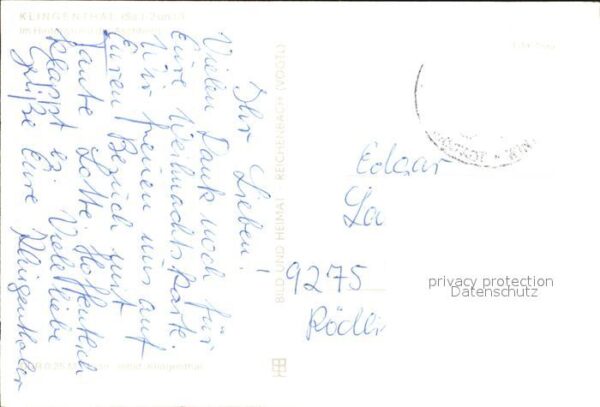 KLINGENTHAL
Ihr Lieben!
Vielen Dank noch für
Eure Weihnachtskarte.
Wir freuen uns auf
Euren Besuch mit
Tante Lotte. Hoffentlich
klappt es. Viele liebe
Grüße Eure Klingenthaler
BILD UND HEIMAT REICHENBACH (VOGTL)
Edgar
La
9275
Rödli
privacy protection
Datenschutz